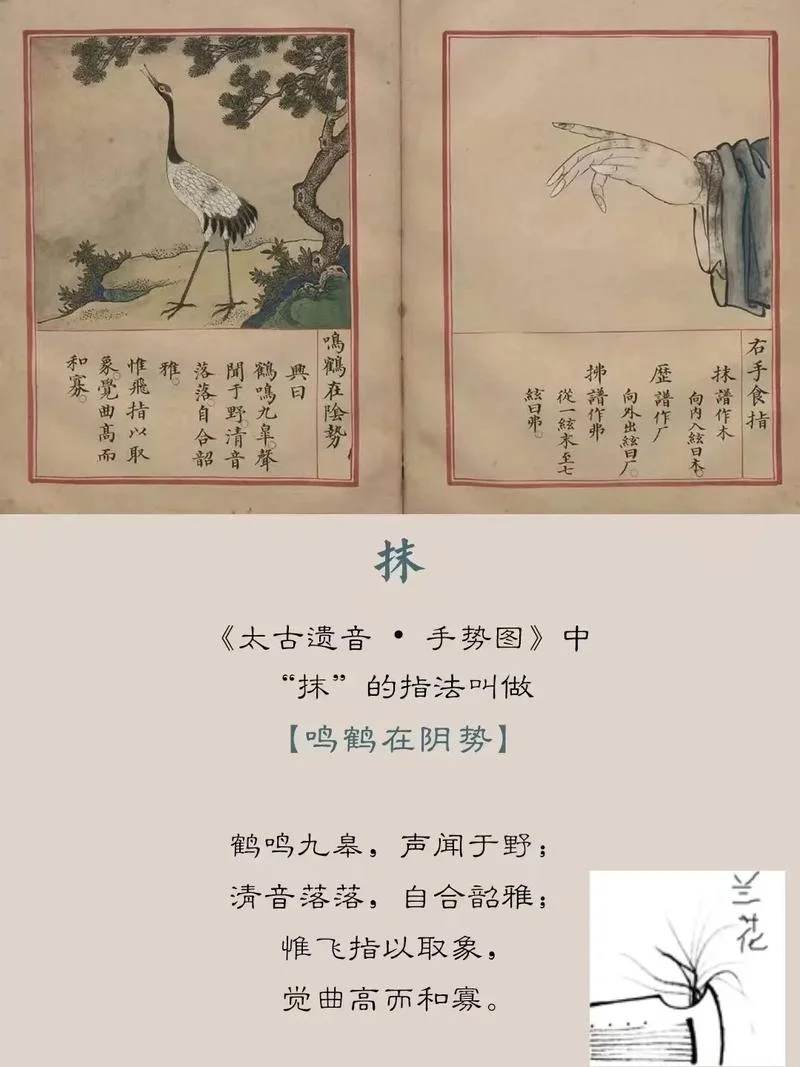 鳴鶴在陰勢
興曰
鶴鳴九皋聲
聞于野。清音
落落。自合韶
雅。
惟飛指以取
象。覺曲高而
和寡。
右手食指
抹譜作木
向内入絃曰木。
歷譜作厂
向外出絃曰厂。
拂譜作弗
從一絃末至七
絃曰弗。
抹
《太古遗音·手势图》中
“抹”的指法叫做
【鸣鹤在阴势】
鹤鸣九皋，声闻于野；
清音落落，自合韶雅；
惟飞指以取象，
觉曲高而和寡。
兰花